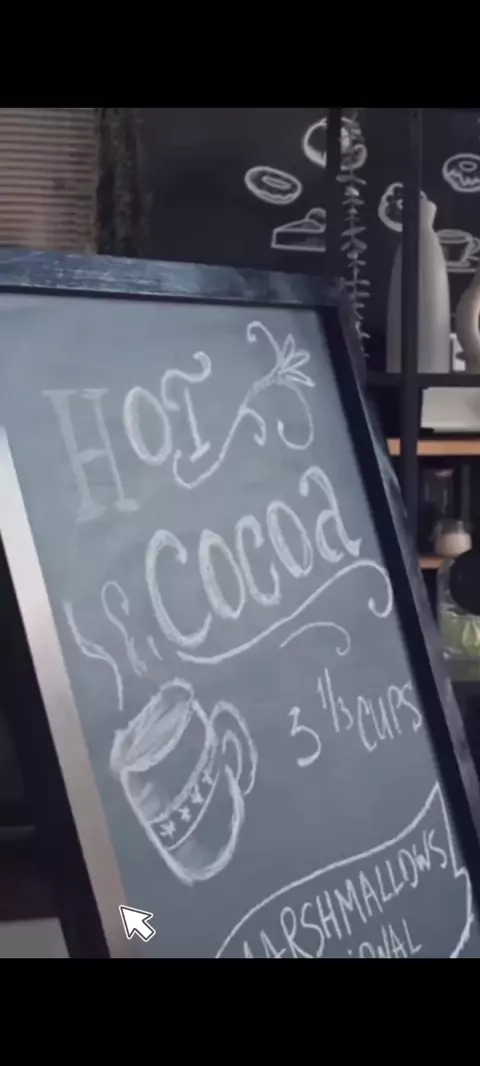 HOT
COCOa
3 1/3 CUPS
MARSHMALLOWS